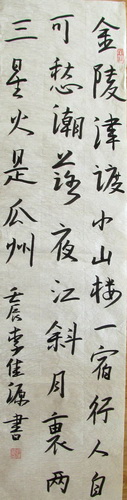 金陵津渡小山楼一宿行人自
可愁潮落夜江斜月裏两
三星火是瓜州 壬辰李佳源書